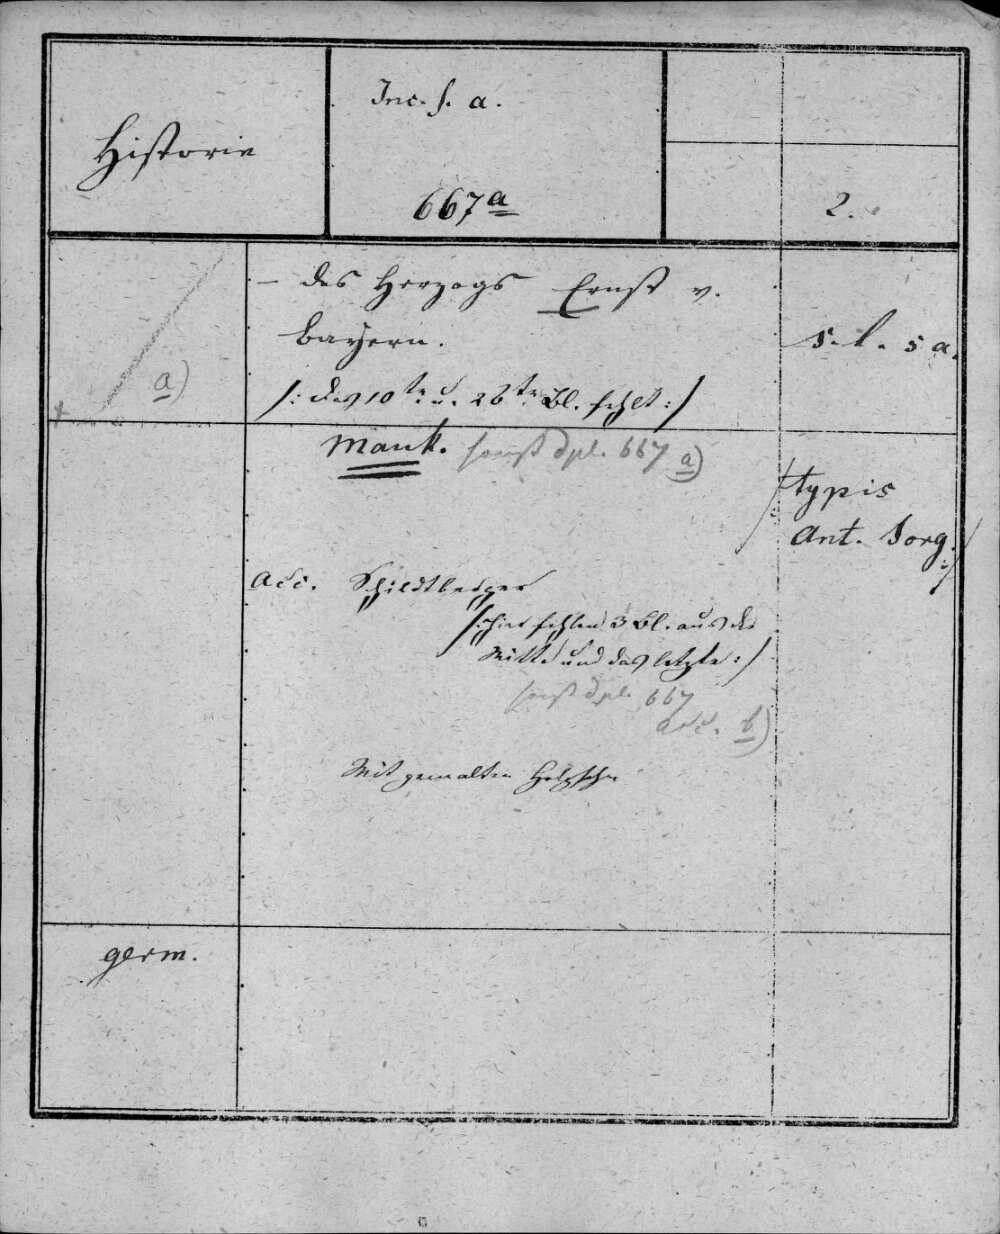 Historie
Inc. s. a.
667a
2.
– des Herzogs Ernst v.
Bayern.
s. l. s a.
a)
/: das 10te u. 26te Bl. fehlt :/
Mank. sonst dpl. 667 a)
/: typis
Ant. Sorg. :/
Acc. Schildtberger
/: hier fehlen 3 Bl. aus der
Mitte und das letzte :/
sonst dpl. 667
acc. b)
Mit gemalten Holzschn
germ.